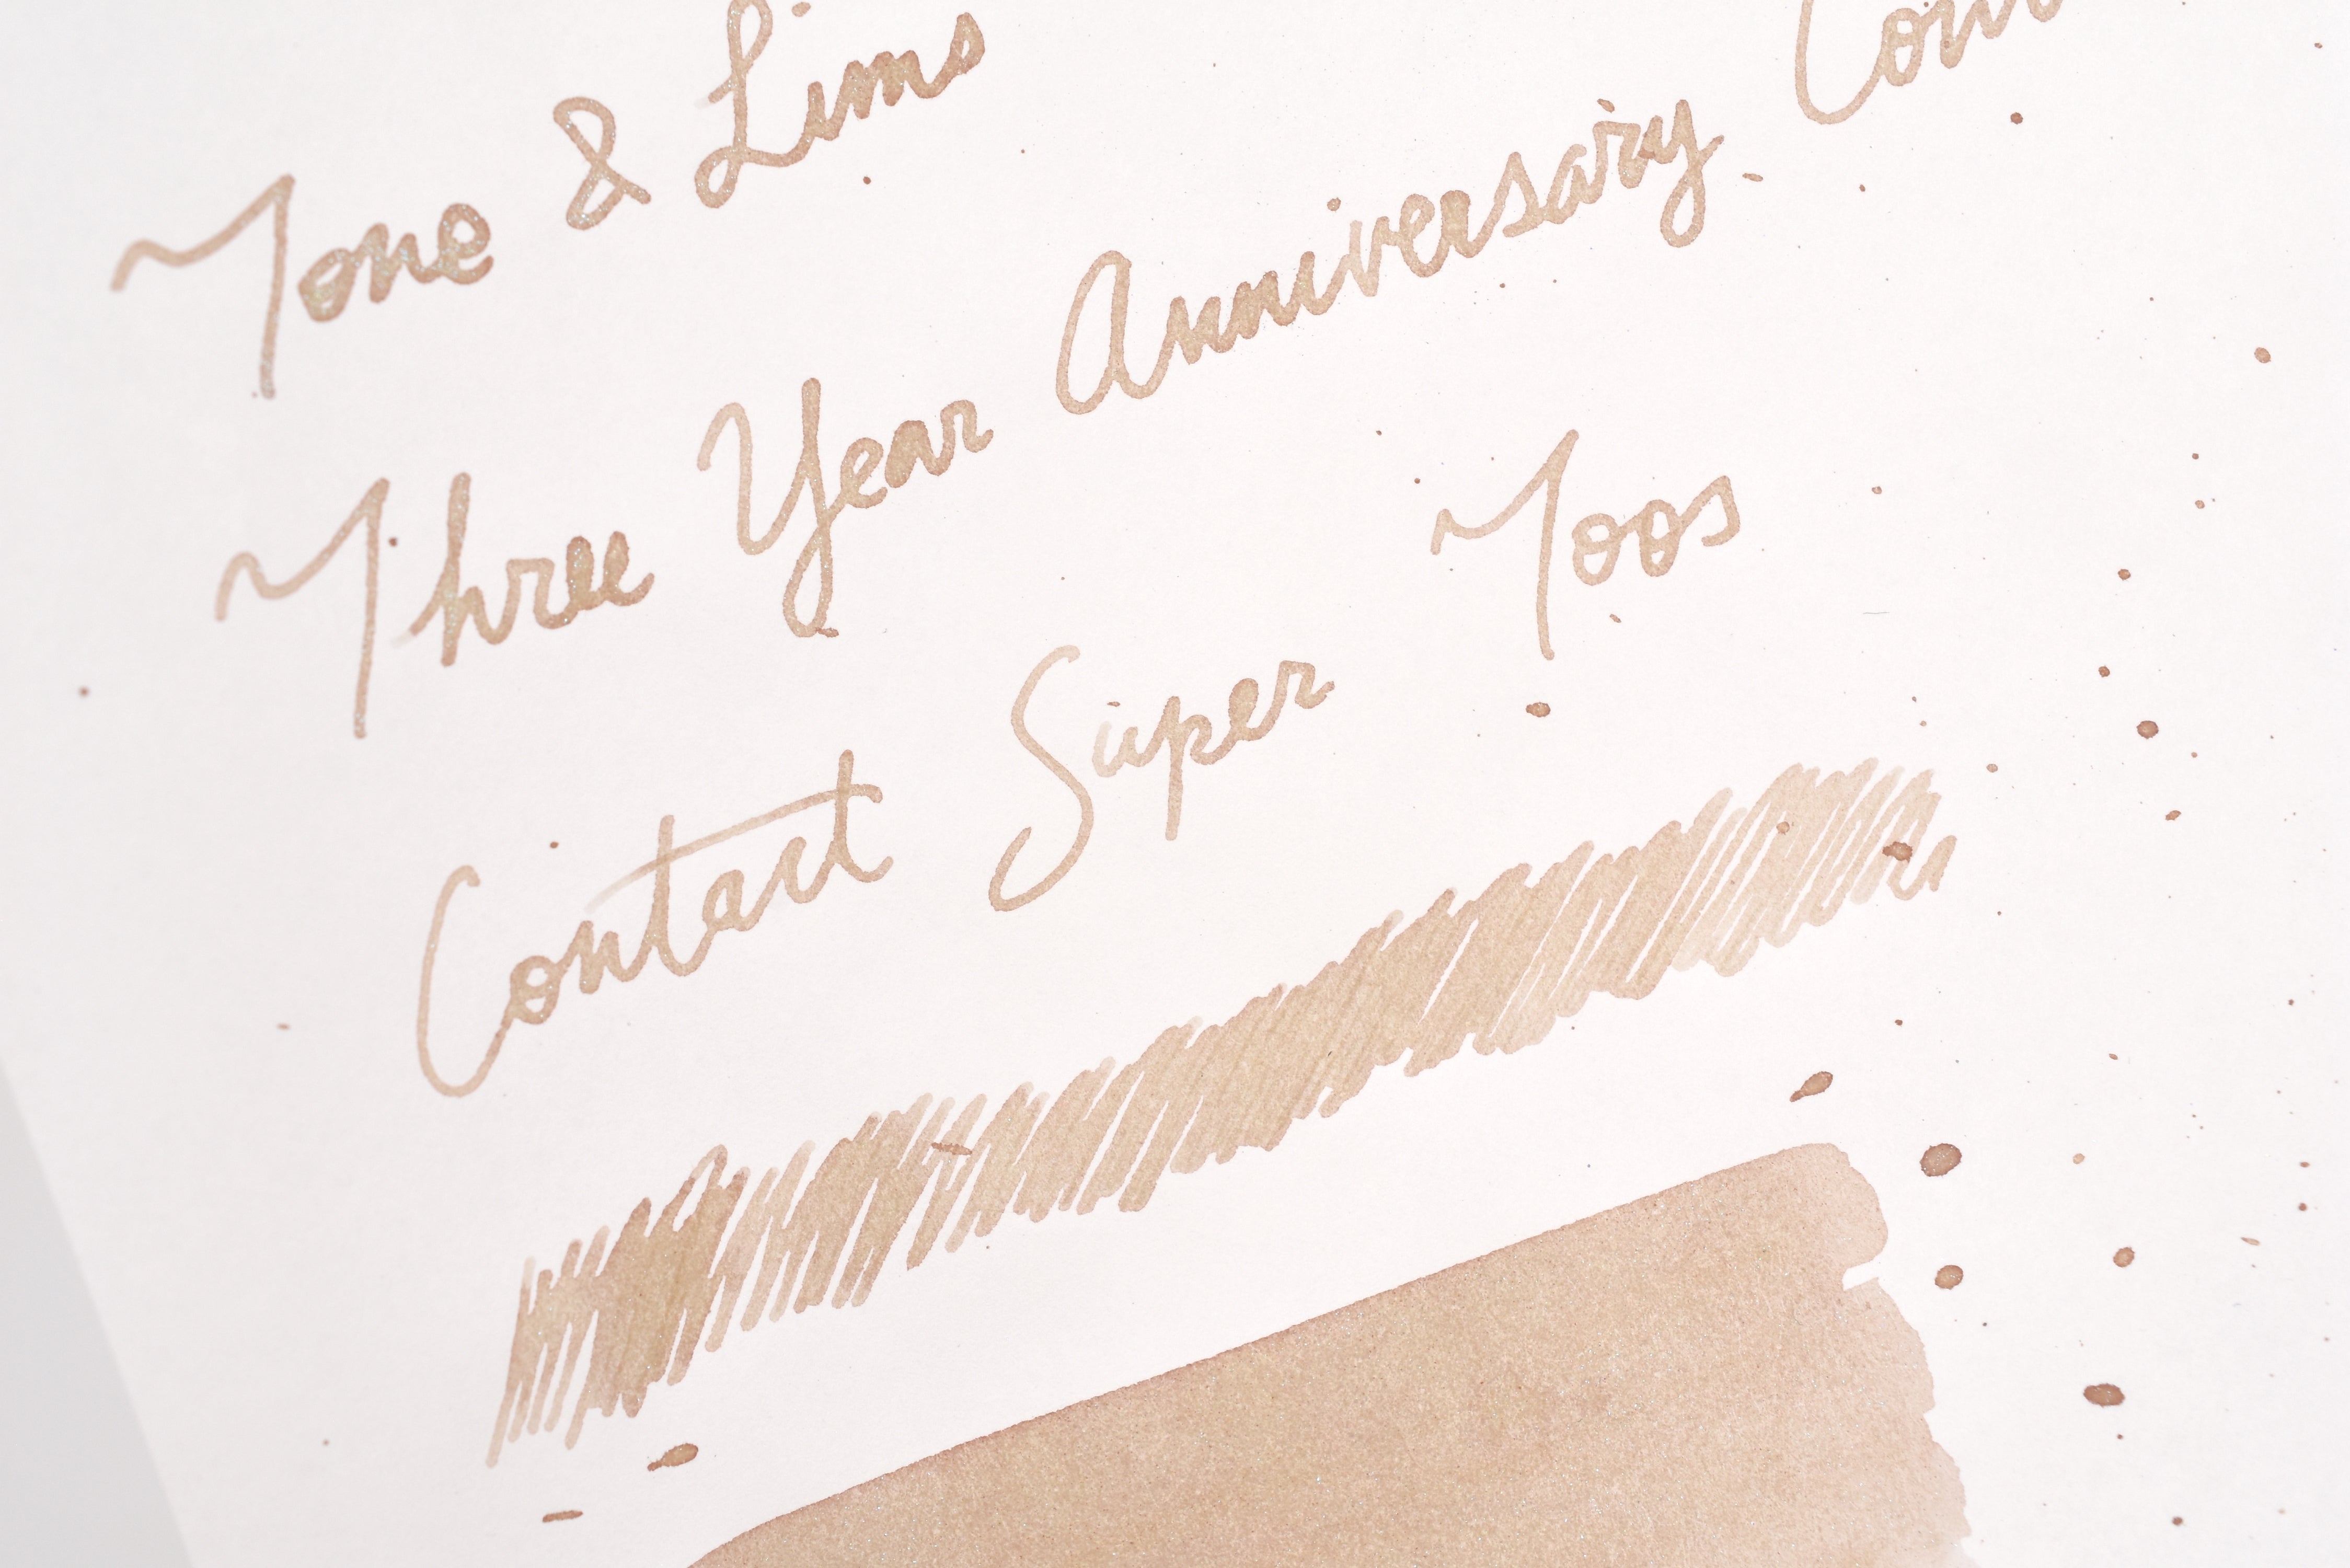 Tone & Lims
Three Year Anniversary
Contact Super Toos